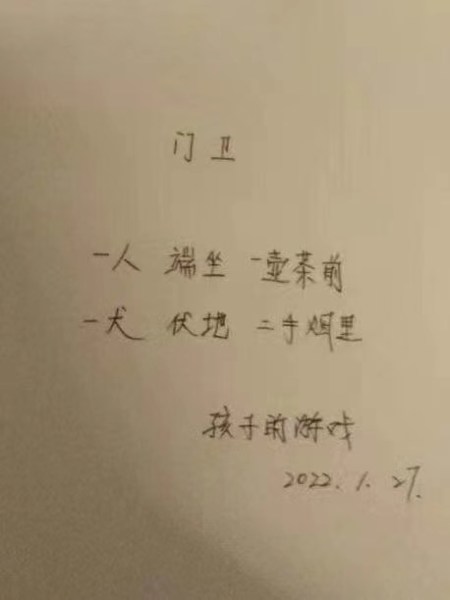 门卫
一人 端坐 一壶茶前
一犬 伏地 二手烟里
孩子的游戏
2022.1.27.